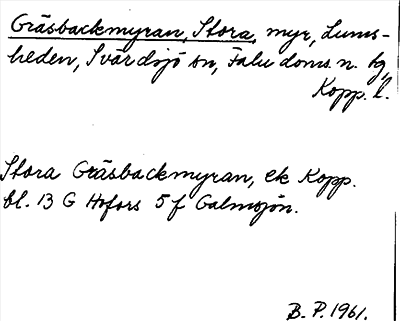 Gräsbackmyran, Stora, myr, Lums-
heden, Svärdsjö sn, Falu doms. n. tg,
Kopp. l.
Stora Gräsbackmyran, ek Kopp.
bl. 13 G Hofors 5 f Galmsjön.
B. P. 1961.